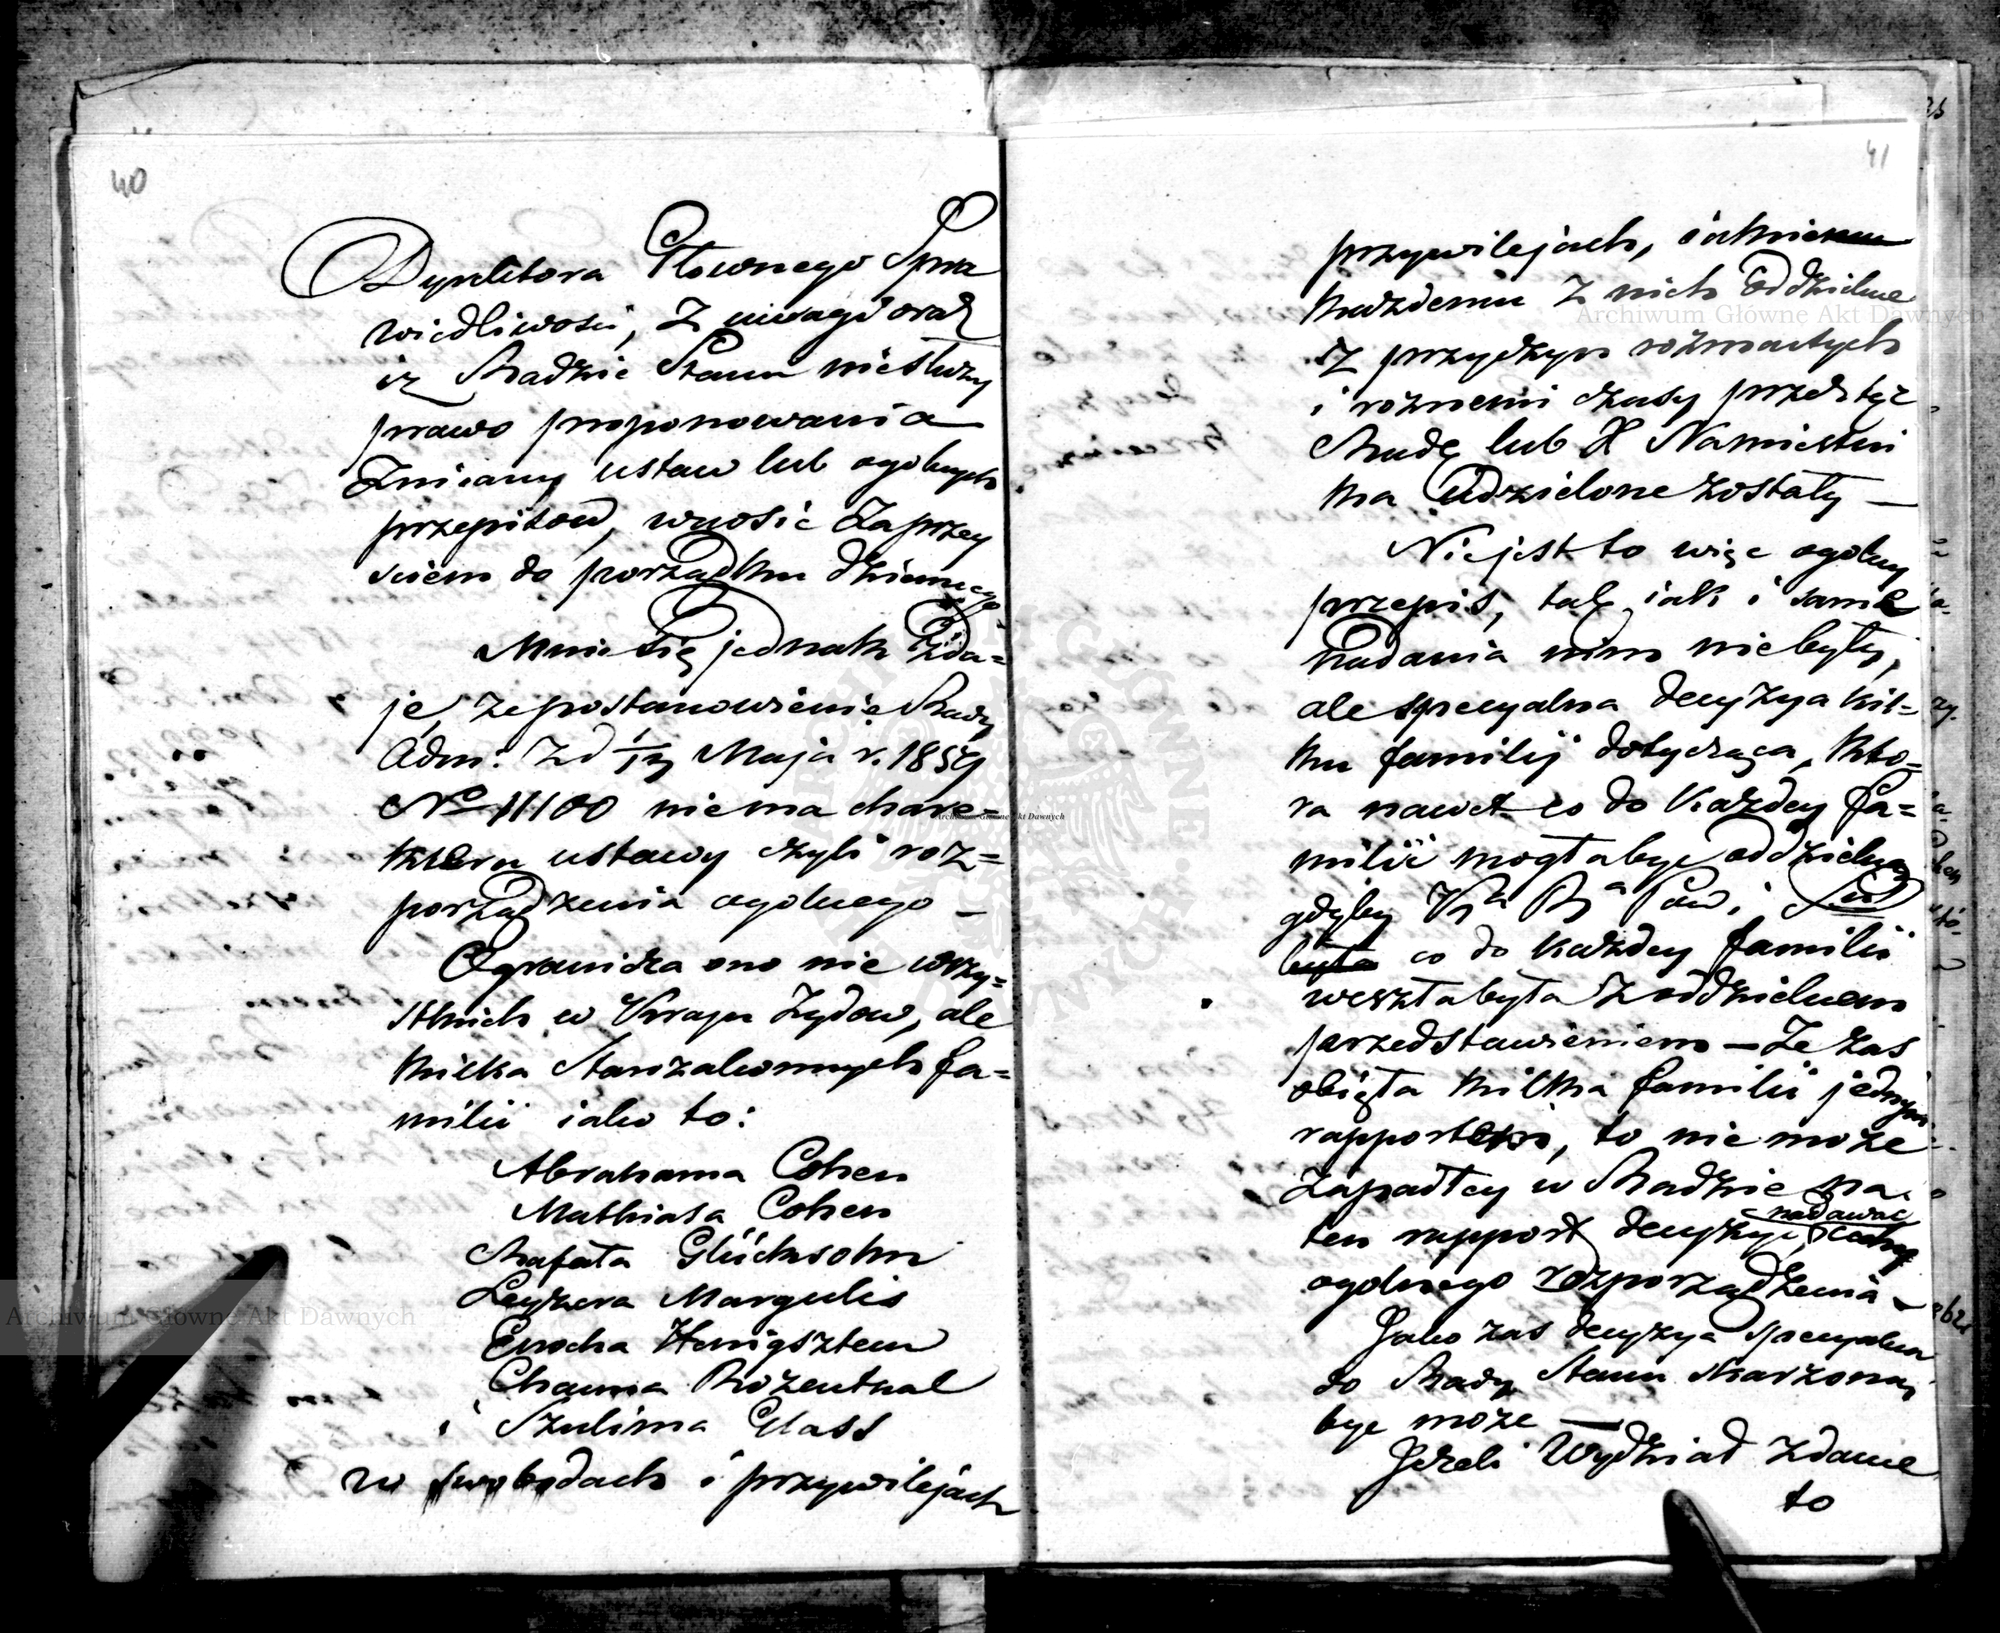 40
Dyrektora Głównego Spra
wiedliwości, z uwagi oraz
iż Radzie Stanu niesłuży
prawo proponowania
Zmiany ustaw lub ogolnych
przepisow, wnosić Zaprzey
sciem do porządku dziennego
Mnie się jednak Zda=
je, że postanowienie Rady
Adm: Zd Maja r. 1859
No 11100 niema charc=
kteru ustawy czyli roz=
porządzenia ogolnego –
Ogranicza ono nie wszy=
stkich w Kraju Żydow, ale
kilka Starozakonnych fa=
milii iako to:
Abrahama Cohen
Mathiasa Cohen
Rafała Glücksohn
Leyzera Margulis
Enocha Hönigsztein
Chaima Rozenthal
i Szulima Glass
w swobodach i przywilejach
41
przywilejach, iakie
każdemu z nich oddzielne
z przyczyn rozmaitych
i roznemi czasy przez tęż
Radę lub X Namiestni
ka Udzielone zostały —
Nie jest to więc ogolny
przepis, tak iak i same
Nadania nim niebyły,
ale specyalna decyzya kil=
ku familij dotycząca, kto=
ra nawet co do Każdey fa=
milii mogłabyć oddzielną
gdyby Kja Rja Pow. i Sud
była co do każdey familii
weszłabyła z oddzielnem
przedstawieniem — Że zas
obięta kilka familii jednym
rapportem, to nie może
Zapadłey w Radzie na
ten rapport decyzyi, nadawać cechy
ogolnego rozporządzenia –
Jako zas decyzya specyalna
do Rady Stanu skarżoną
być może —
Jeżeli Wydział zdanie
to
Archiwum Główne Akt Dawnych
Archiwum Główne Akt Dawnych
Archiwum Główne Akt Dawnych